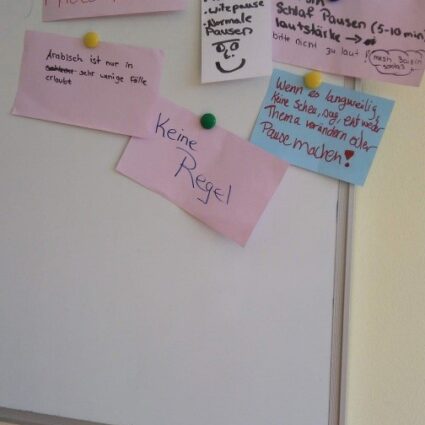 - Witzpause
- Normale
Pausen
Schlaf Pausen (5-10 min)
lautstärke →
bitte nicht zu laut
Arabisch ist nur in
sehr wenige Fälle
erlaubt
Wenn es langweilig,
keine Scheu, sag, entweder
Thema verändern oder
Pause machen!
Keine
Regel